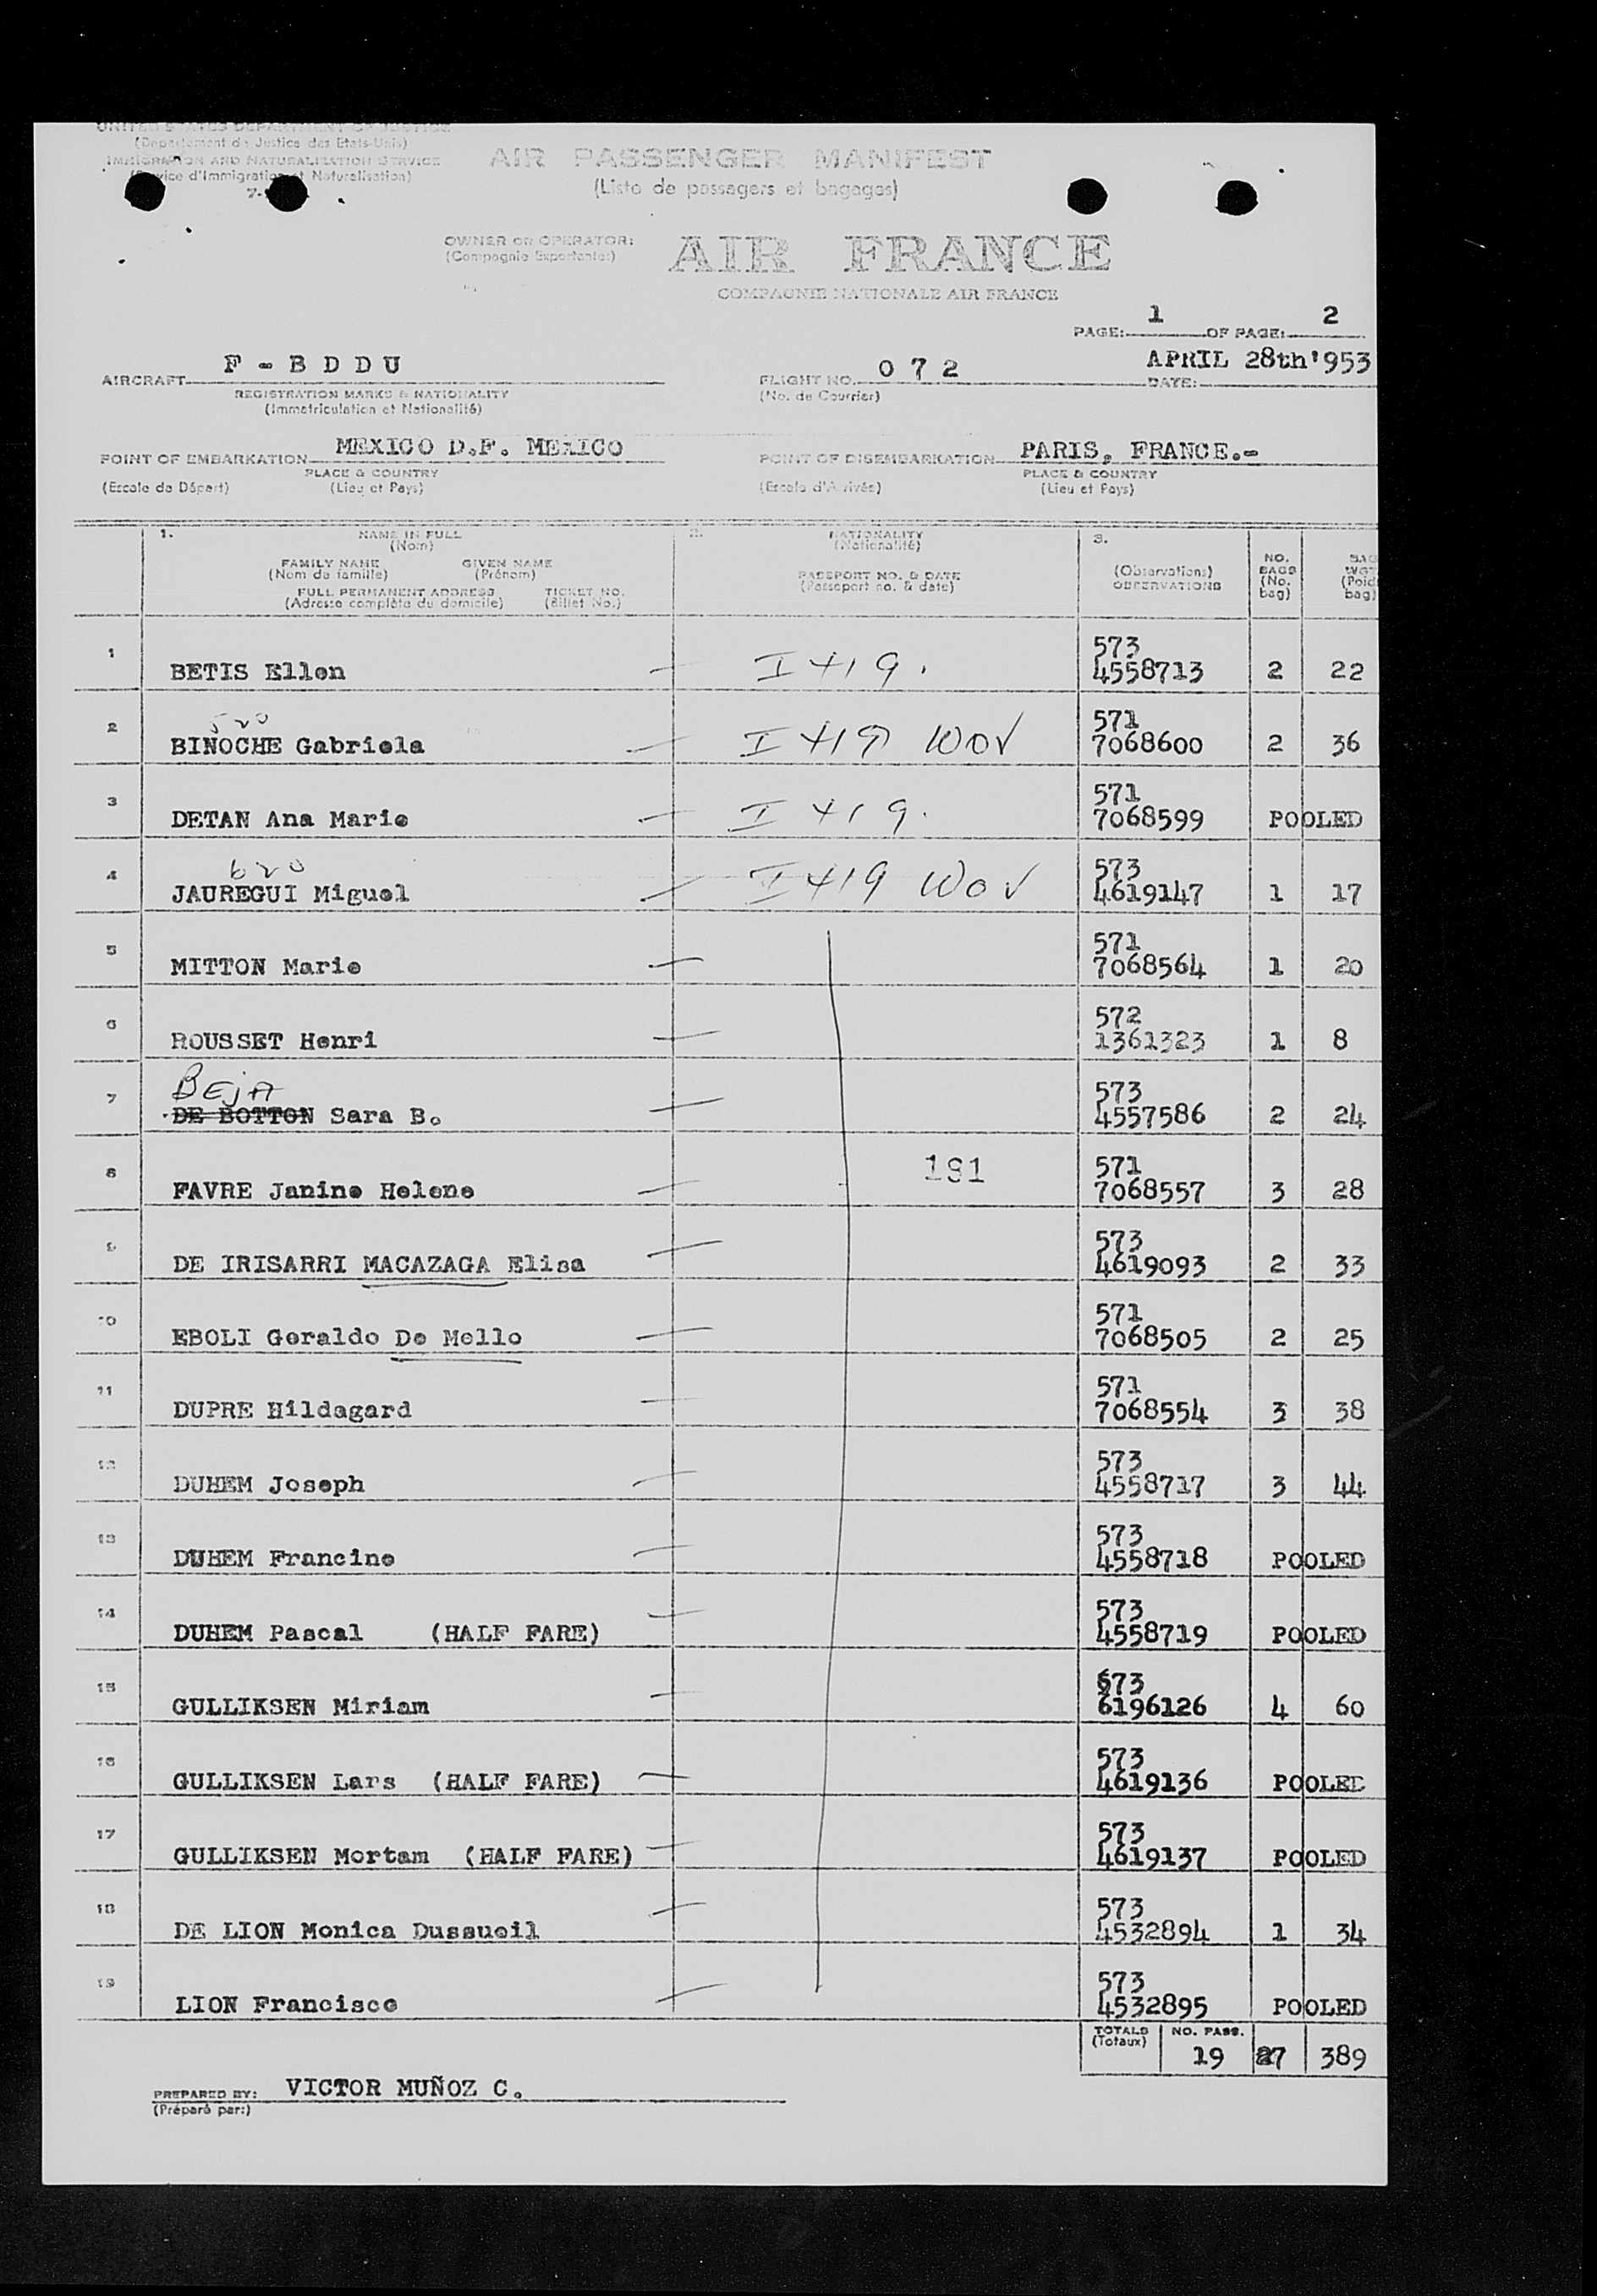 UNITED STATES DEPARTMENT OF JUSTICE
(Departement de Justice des Etats-Unis)
IMMIGRATION AND NATURALIZATION SERVICE
(Service d'Immigration et Naturalisation)
AIR PASSENGER MANIFEST
(Liste de passagers et bagages)
OWNER OR OPERATOR: AIR FRANCE
(Compagnie Exportante:)
COMPAGNIE NATIONALE AIR FRANCE
PAGE: 1 OF PAGE: 2
AIRCRAFT F - B D D U FLIGHT NO. 0 7 2 APRIL 28th'953
DATE:
REGISTRATION MARKS & NATIONALITY (No. de Courrier)
(Immatriculation et Nationalité)
POINT OF EMBARKATION MEXICO D.F. MEXICO POINT OF DISEMBARKATION PARIS, FRANCE.-
PLACE & COUNTRY PLACE & COUNTRY
(Escale de Départ) (Lieu et Pays) (Escale d'Arrivée) (Lieu et Pays)
1. NAME IN FULL 2. NATIONALITY 3.
(Nom) (Nationalité)
FAMILY NAME GIVEN NAME NO. BAG
(Nom de famille) (Prénom) PASSPORT NO. & DATE (Observations) BAGS WGT
FULL PERMANENT ADDRESS TICKET NO. (Passeport no. & date) OBSERVATIONS (No. (Poid
(Adresse complète du domicile) (Billet No.) bag) bag)
1 573
BETIS Ellen I 419. 4558713 2 22
2 520 571
BINOCHE Gabriela I 419 WOV 7068600 2 36
3 571
DETAN Ana Marie I 419. 7068599 POOLED
4 620 573
JAUREGUI Miguel I 419 WOV 4619147 1 17
5 571
MITTON Marie 7068564 1 20
6 572
ROUSSET Henri 1361323 1 8
7 BEJA 573
DE BOTTON Sara B. 4557586 2 24
8 191 571
FAVRE Janine Helene 7068557 3 28
9 573
DE IRISARRI MACAZAGA Elisa 4619093 2 33
10 571
EBOLI Geraldo De Mello 7068505 2 25
11 571
DUPRE Hildagard 7068554 3 38
12 573
DUHEM Joseph 4558717 3 44
13 573
DUHEM Francine 4558718 POOLED
14 573
DUHEM Pascal (HALF FARE) 4558719 POOLED
15 573
GULLIKSEN Miriam 6196126 4 60
16 573
GULLIKSEN Lars (HALF FARE) 4619136 POOLED
17 573
GULLIKSEN Mortam (HALF FARE) 4619137 POOLED
18 573
DE LION Monica Dussueil 4532894 1 34
19 573
LION Francisco 4532895 POOLED
TOTALS NO. PASS.
(Totaux) 19 27 389
PREPARED BY: VICTOR MUÑOZ C.
(Préparé par:)